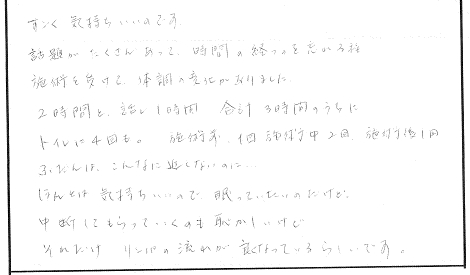 すごく気持ちいいのです
話題がたくさんあって、時間の経つのを忘れる程
施術を受けて、体調の変化がありました
2時間と、話し1時間 合計3時間のうちに
トイレに4回も。施術前、1回 施術中2回、施術後1回
ふだんは、こんなに近くないのに…
ほんとは気持ちいいので眠っていたいのだけど
中断してもらっていくのも恥かしいけど
それだけリンパの流れが良くなっているらしいです。